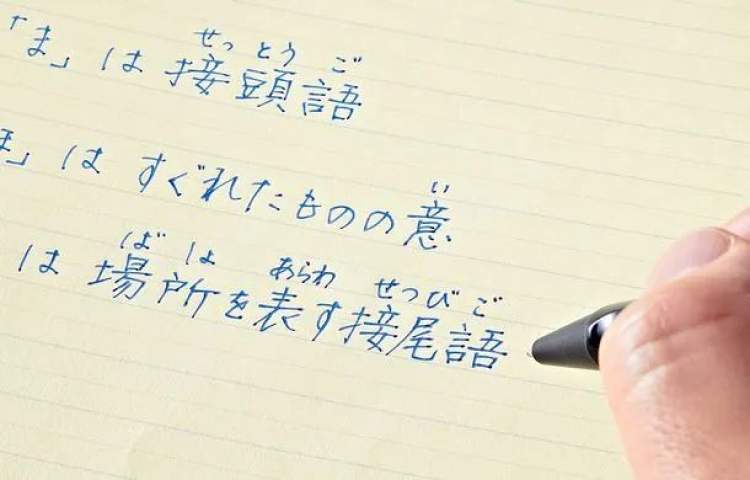 せっとうご
「ま」は接頭語
い
」はすぐれたものの意
ばは あらわ せつびご
は場所を表す接尾語